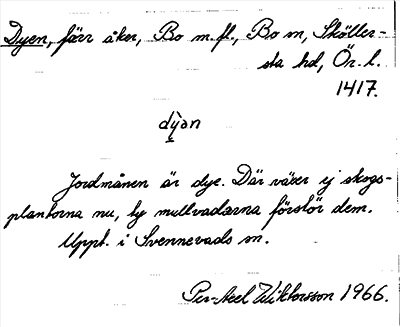 Dyen, färr åker, Bo m.fl., Bo sn, Sköller-
sta hd, Ör. l.
1417.
dỳən
Jordmånen är dye. Där växer ej skogs-
plantorna nu, ty mullvadarna förstör dem.
Uppt. i Svennevads sn.
Per-Axel Wiktorsson 1966.